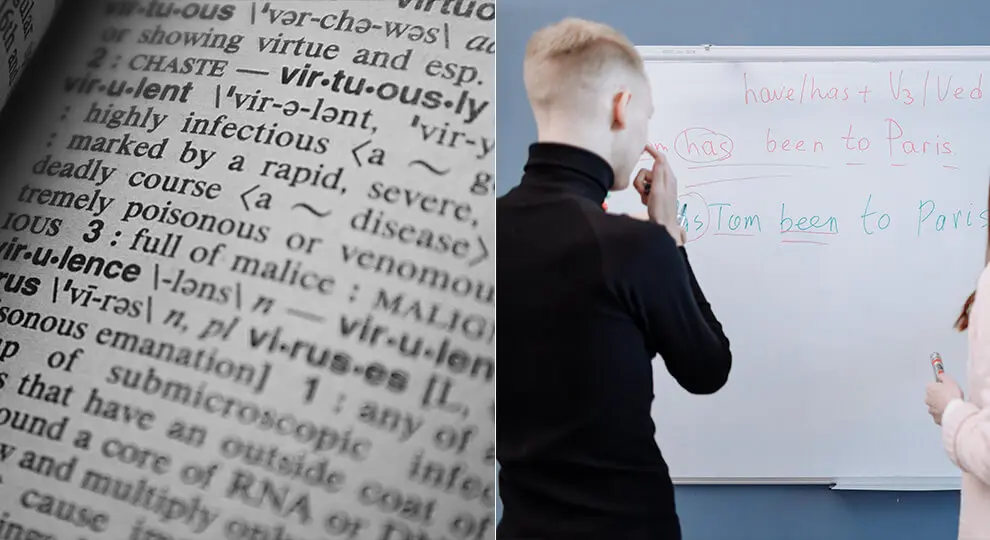 vir•tu•ous \ˈvər-chə-wəs\
or showing virtue and esp.
2 : CHASTE — vir•tu•ous•ly
vir•u•lent \ˈvir-ə-lənt, ˈvir-y
: highly infectious ⟨a ~
: marked by a rapid, severe,
deadly course ⟨a ~ disease⟩
tremely poisonous or venomous
IOUS 3 : full of malice : MALIG
vir•u•lence \-ləns\ n — vir•u•len
rus \ˈvī-rəs\ n, pl vi•rus•es [L,
sonous emanation] 1 : any of
up of submicroscopic infec
s that have an outside coat of
ound a core of RNA or D
w and multiply only
cause
have/has + V3/Ved
m has been to Paris.
has Tom been to Paris